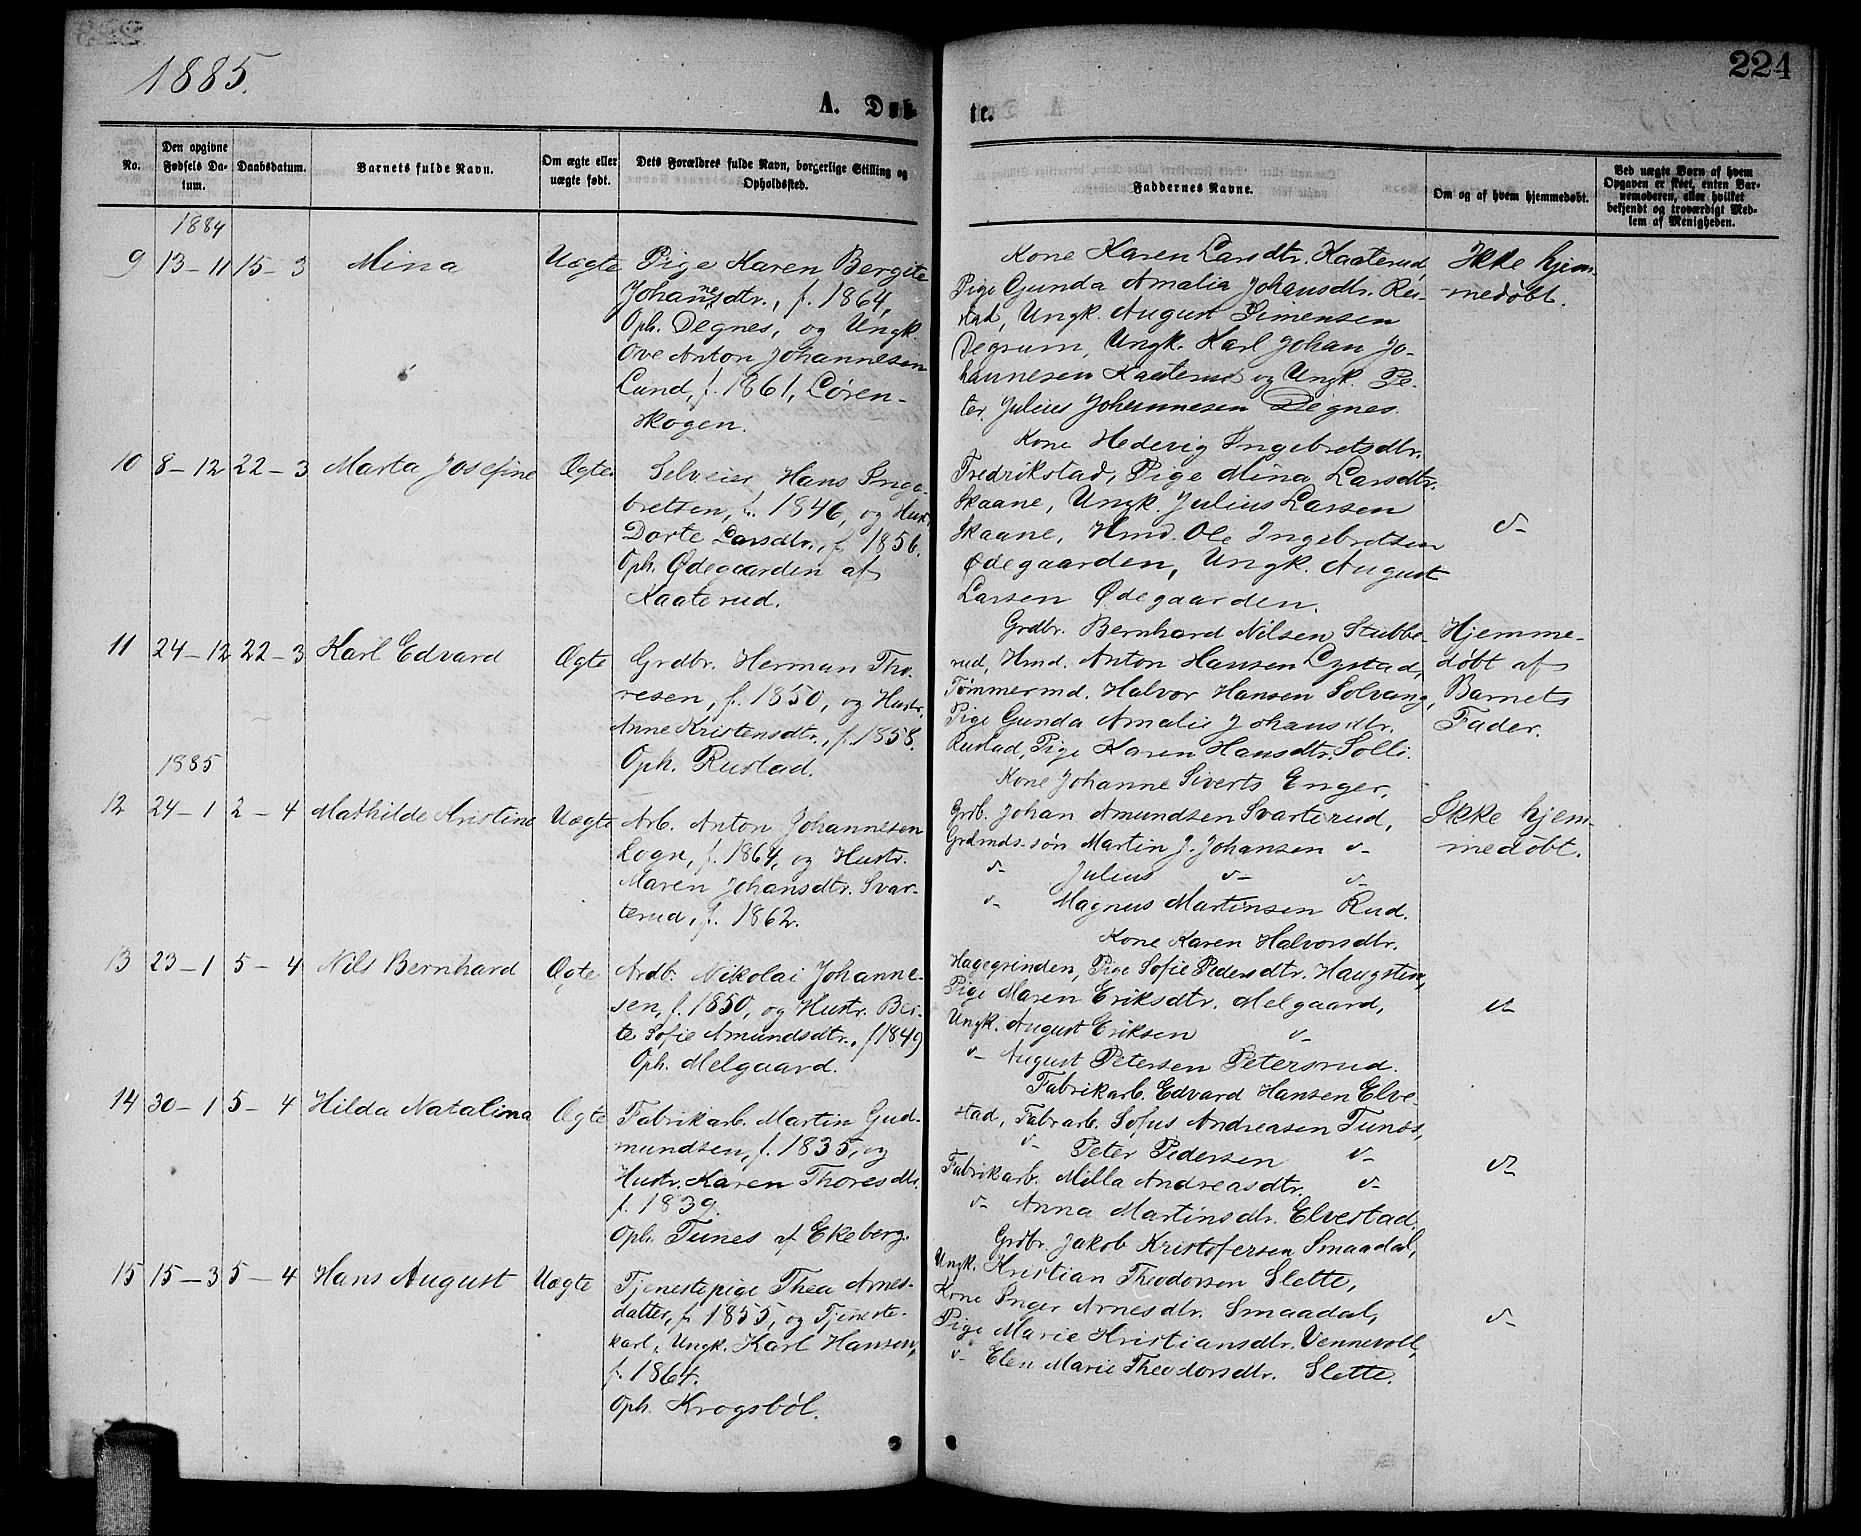 1885.
224
A. Døb
te.
No.
Den opgivne Fødsels Datum.
Daabsdatum.
Barnets fulde Navn.
Om ægte eller uægte født.
Dets Forældres fulde Navn, borgerlige Stilling og Opholdssted.
Faddernes Navne.
Om og af hvem hjemmedøbt.
Ved uægte Børn af hvem Opgaven er skeet, enten Barnemoderen, eller hvilket bekjendt og troværdigt Medlem af Menigheden.
1884
9 13-11 15-3 Mina Uægte
Pige Karen Bergite
Johannesdtr., f. 1864,
Oph. Degnes, og Ungk.
Ove Anton Johannesen
Lund, f. 1861, Løren-
skogen.
Kone Karen Larsdtr. Kaaterud,
Pige Gunda Amalia Johansdtr. Ru-
stad, Ungk. August Simensen
Degrum, Ungk. Karl Johan Jo-
hannesen Kaaterud og Ungk. Pe-
ter Julius Johannesen Degnes.
Ikke hjem-
medøbt.
10 8-12 22-3 Marta Josefine Ægte
Selveier Hans Inge-
bretsen, f. 1846, og Hustr.
Dorte Larsdtr., f. 1856.
Oph. Ødegaarden af
Kaaterud.
Kone Hedevig Ingebretsdtr.
Fredrikstad, Pige Mina Larsdtr.
Skaane, Ungk. Julius Larsen
Skaane, Hmd. Ole Ingebretsen
Ødegaarden, Ungk. August
Larsen Ødegaarden.
v-
11 24-12 22-3 Karl Edvard Ægte
Grdbr. Herman Tho-
resen, f. 1850, og Hustr.
Anne Kristensdtr., f. 1858.
Oph. Rustad.
Grdbr. Bernhard Nilsen Stubbe-
rud, Hmd. Anton Hansen Lystad,
Tømmermd. Halvor Hansen Solvang,
Pige Gunda Amalie Johansdtr.
Rustad, Pige Karen Hansdtr. Solli.
Hjemme-
døbt af
Barnets
Fader.
1885
12 24-1 2-4 Mathilde Kristine Uægte
Arb. Anton Johannesen
Logn, f. 1864, og Hustr.
Maren Johansdtr. Svar-
terud, f. 1862.
Kone Johanne Siverts Enger,
Grb. Johan Amundsen Svarterud,
Grdmds. søn Martin J. Johansen v-
v- Julius v- v-
v- Magnus Martinsen Rud.
Ikke hjem-
medøbt.
13 23-1 5-4 Nils Bernhard Ægte
Ardb. Nikolai Johanne-
sen, f. 1850, og Hustr. Ber-
te Sofie Amundsdtr., f 1849
Oph. Melgaard.
Kone Karen Halvorsdtr.
Hagegrinden, Pige Sofie Pedersdtr. Haugsten,
Pige Maren Eriksdtr. Melgaard,
Ungk. August Eriksen v-
v- August Petersen Petersrud.
v-
14 30-1 5-4 Hilda Natalina Ægte
Fabrikarb. Martin Gud-
mundsen, f. 1835, og
Hustr. Karen Thoresdtr.
f. 1839.
Oph. Tunes af Ekeberg.
Fabrikarb. Edvard Hansen Elve-
stad, Fabrarb. Sofus Andreasen Tunes,
v- Peter Pedersen v-
Fabrikarb. Milla Andreasdtr. v-
v- Anna Martinsdtr. Elvestad.
v-
15 15-3 5-4 Hans August Uægte
Tjenestepige Thea Arnes-
datter, f. 1855, og Tjeneste-
karl, Ungk. Karl Hansen,
f. 1864.
Oph. Krogsbøl.
Grdbr. Jakob Kristofersen Smaadal,
Ungk. Kristian Theodorsen Slette,
Kone Inger Arnesdtr. Smaadal,
Pige Marie Kristiansdtr. Vennevoll,
v- Elen Marie Theodorsdtr. Slette.
v-